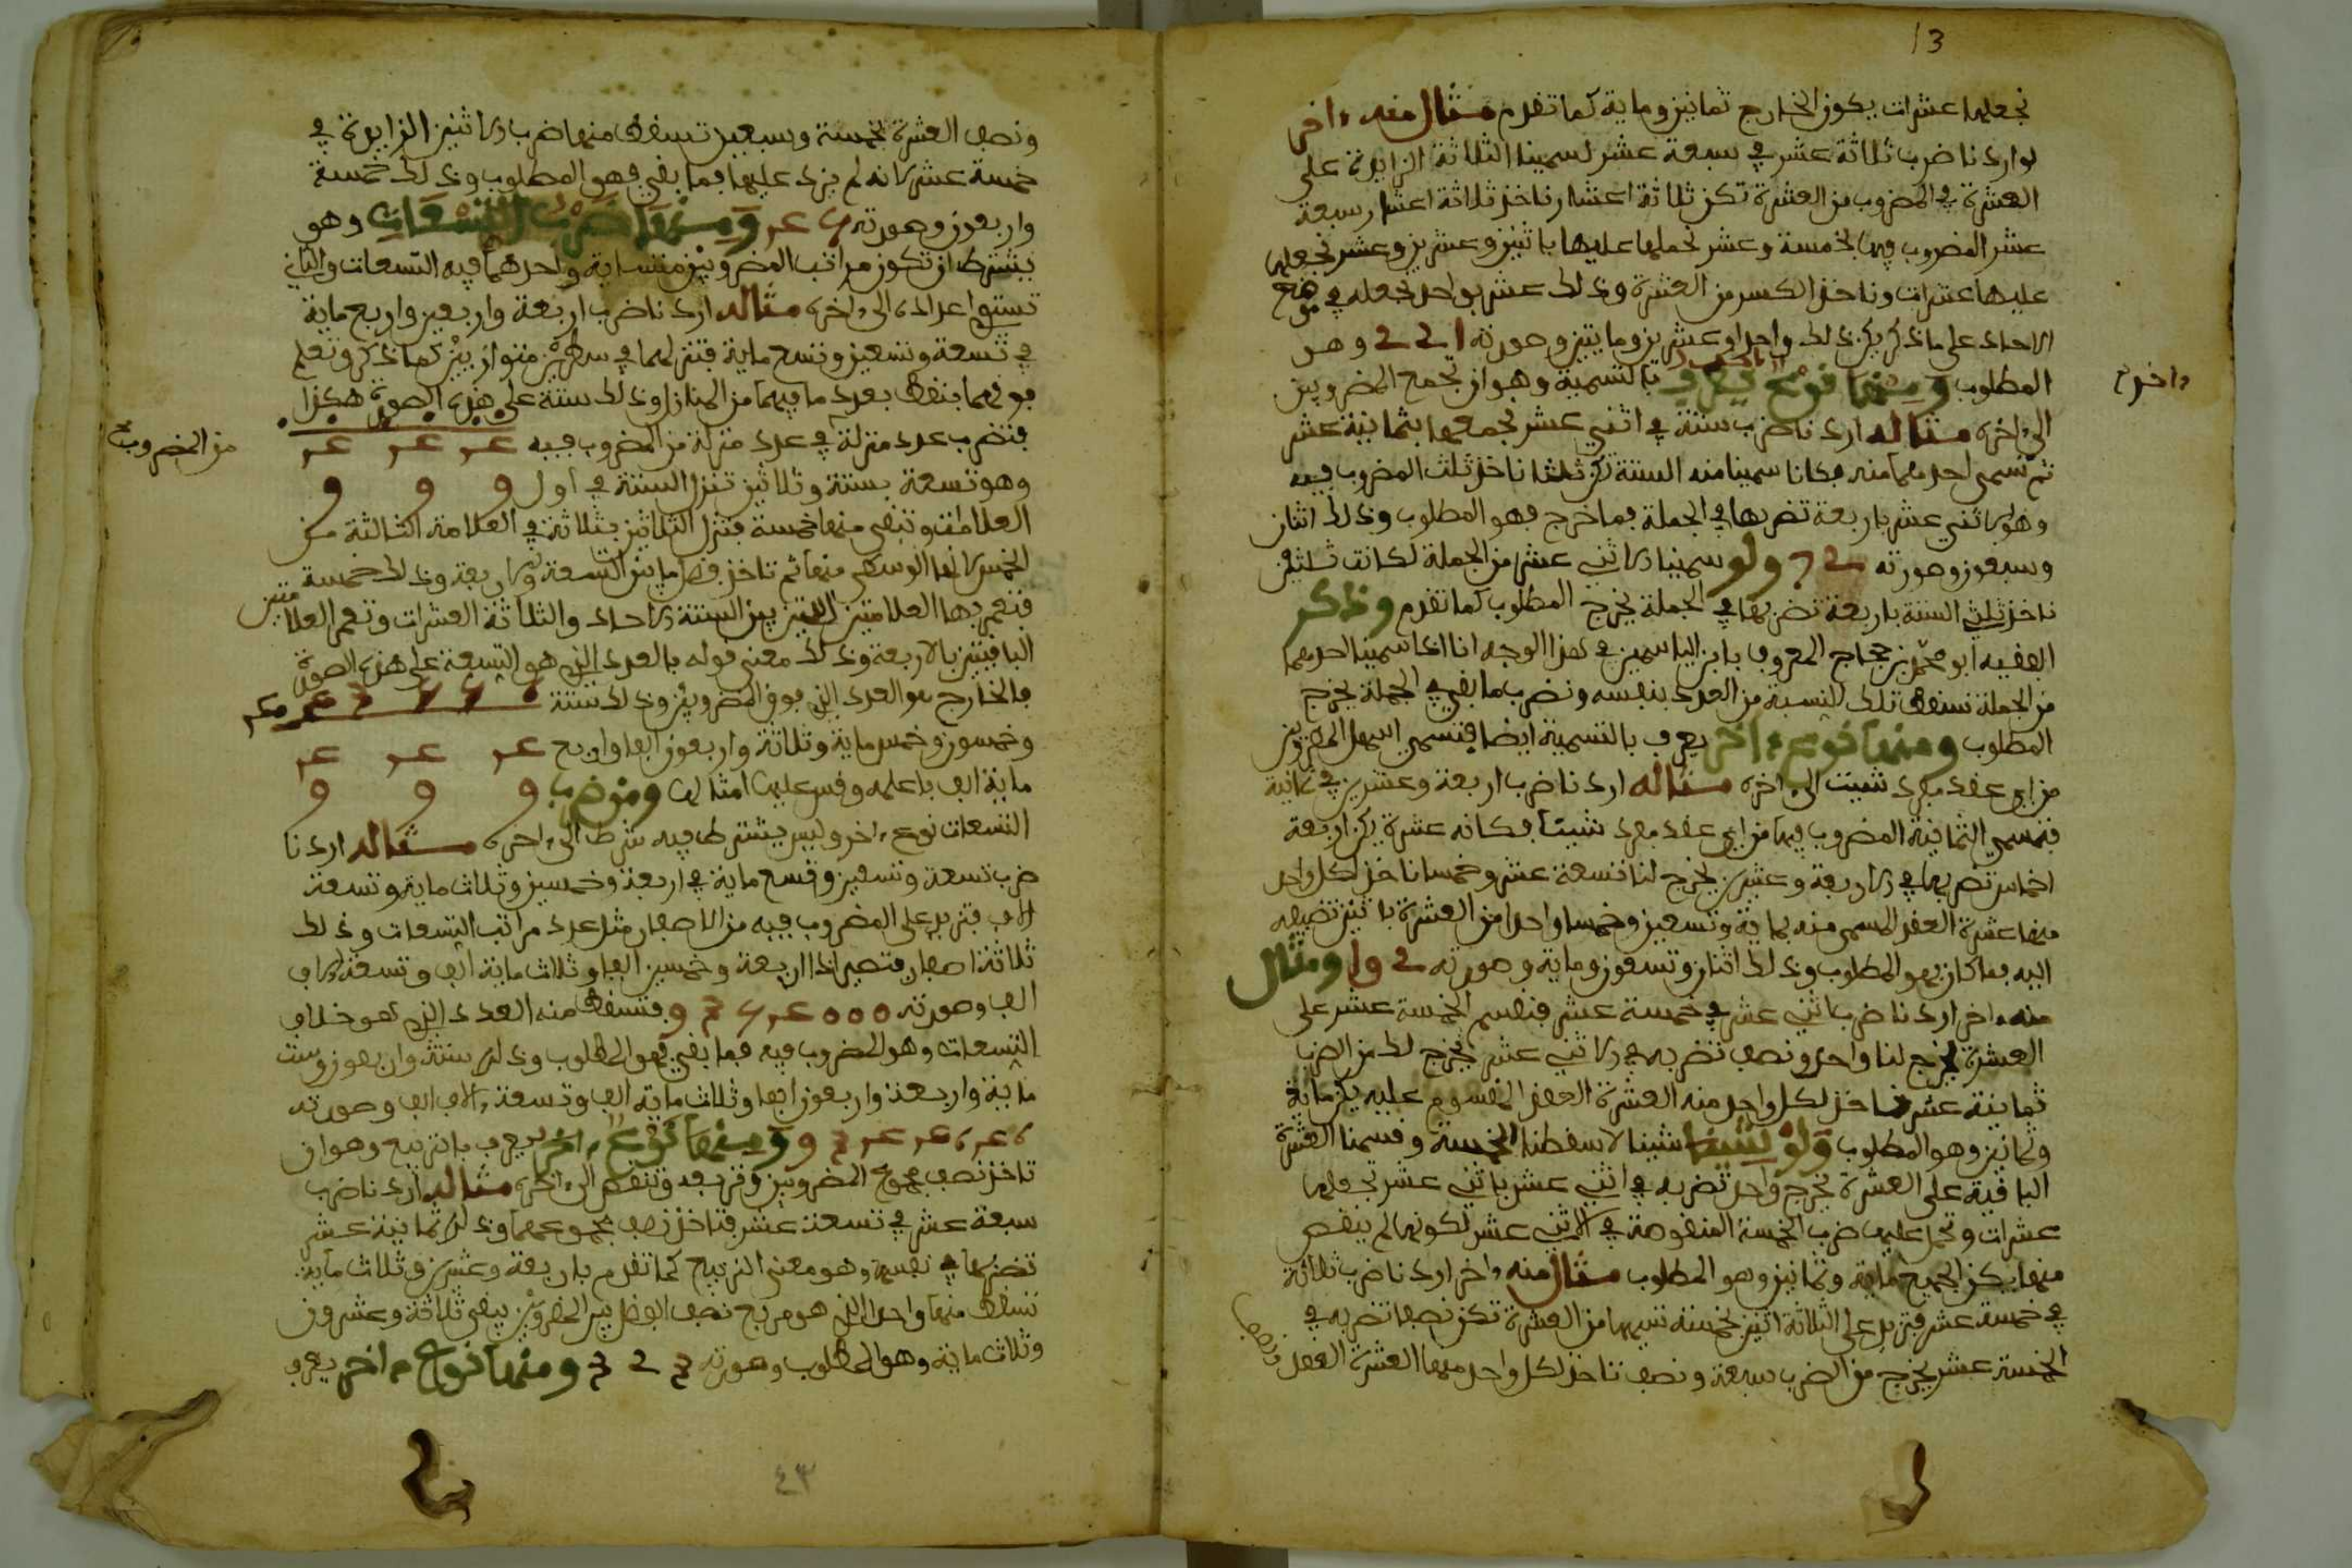 13
نجعلها عشرات يكون الخارج ثمانين وماية كما تقدم مثال منه ءاخر
لو اردنا ضرب ثلاثة عشر في سبعة عشر لسمينا الثلاثة الزايدة على
العشرة في المضروب من العشرة تكن ثلاثة اعشار ناخذ ثلاثة اعشار سبعة
عشر المضروب فيها بخمسة وعشر نحملها عليها باثنين وعشرين وعشر نجعلها
عليها عشرات وناخذ الكسر من العشرة وذلك عشر بواحد نجعله في موضع
الاحاد على ما ذكر يكن ذلك واحدا وعشرين ومايتين وصورته 221 وهو
المطلوب ومنها نوع يعرف بالتسمية وهو ان تجمع المضروبين
ءاخر
الى ءاخره مثاله اردنا ضرب ستة في اثني عشر نجمعهما بثمانية عشر
ثم نسمي احدهما منه فكانا سمينا منه الستة تكن ثلثا ناخذ ثلث المضروب فيه
وهو الاثني عشر باربعة تضربها في الجملة فما خرج فهو المطلوب وذلك اثنان
وسبعون وصورته 72 ولو سمينا الاثني عشر من الجملة لكانت ثلثيها
ناخذ ثلثي الستة باربعة تضربها في الجملة يخرج المطلوب كما تقدم وذكر
الفقيه ابو محمد بن حجاج المعروف بابن الياسمين في هذا الوجه انا اذا سمينا احدهما
من الجملة نسقط تلك النسبة من العدد بنفسه ونضرب ما بقي في الجملة يخرج
المطلوب ومنها نوع ءاخر يعرف بالتسمية ايضا فتسمي احد المضروبين
من اي عقد مفرد شيت الى ءاخره مثاله اردنا ضرب اربعة وعشرين في ثمانية
فنسمي الثمانية المضروب فيها من اي عقد مفرد شينا فكانه عشرة يكن اربعة
اخماس تضربها في الاربعة وعشرين يخرج لنا تسعة عشر وخمسا ناخذ لكل واحد
منها عشرة العقد المسمى منه بماية وتسعين وخمسا واحدا من العشرة باثنين تضيفه
اليه فما كان فهو المطلوب وذلك اثنان وتسعون وماية وصورته 192 ومثال
منه ءاخر اردنا ضرب اثني عشر في خمسة عشر فنقسم الخمسة عشر على
العشرة يخرج لنا واحد ونصف تضربه في الاثني عشر يخرج لك من الضرب
ثمانية عشر ناخذ لكل واحد منه العشرة العقد المقسوم عليه يكن ماية
وثمانين وهو المطلوب ولو شينا لاسقطنا الخمسة وقسمنا العشرة
الباقية على العشرة يخرج واحد تضربه في اثني عشر باثني عشر نجعلها
عشرات وتحمل عليها ضرب الخمسة المنقوصة في الاثني عشر لكونها لم ينقص
منها يكن الجميع ماية وثمانين وهو المطلوب مثال منه ءاخر اردنا ضرب ثلاثة
في خمسة عشر فتزيد على الثلاثة اثنين بخمسة نسميها من العشرة تكن نصفا تضربه في
الخمسة عشر يخرج من الضرب سبعة ونصف تاخذ لكل واحد منها العشرة العقد
ونصف العشرة بخمسة وسبعين تسقط منها ضرب الاثنين الزايدة في
خمسة عشر لانه لم يزد عليها فما بقي فهو المطلوب وذلك خمسة
واربعون وصورته 45 ومنها ضرب التسعات وهو
بشرط ان تكون مراتب المضروبين متساية واحدهما فيه التسعات والثاني
تستوي اعداده الى ءاخره مثاله اردنا ضرب اربعة واربعين واربع ماية
في تسعة وتسعين وتسع ماية فتنزلهما في سطرين متوازيين كما ذكر وتعلم
فوقهما بنقط بعدد ما فيهما من المنازل وذلك ستة على هذه الصورة هكذا
فتضرب عدد منزلة في عدد منزلة من المضروب فيه 4 4 4
من المضروب
وهو تسعة بستة وثلاثين تنزل الستة في اول 9 9 9
العلامات وتبقي منها خمسة فتنزل الثلاثين بثلاثة في العلامة الثالثة من
فتعمر بها العلامتين اللتين بين الستة الاحاد والثلاثة العشرات وتعمر العلامتين
الباقيتين بالاربعة وذلك معنى قوله بالعدد الذي هو التسعة على هذه الصورة
فالخارج هو العدد الذي فوق المضروبين وذلك ستة 443556
وخمسون وخمس ماية وثلاثة واربعون الفا واربع 4 4 4
ماية الف فاعلمه وقس عليها امثالها ومن ضرب 9 9 9
التسعات نوع ءاخر وليس يشترط فيه شرط الى ءاخره مثاله اردنا
ضرب تسعة وتسعين وتسع ماية في اربعة وخمسين وثلاث ماية وتسعة
الاف فتزيد على المضروب فيه من الاصفار مثل عدد مراتب التسعات وذلك
ثلاثة اصفار فتصير اذا اربعة وخمسين الفا وثلاث ماية الف وتسعة الاف
الف وصورته 9354000 فتسقط منه العدد الذي هو خلاف
التسعات وهو المضروب فيه فما بقي فهو المطلوب وذلك ستة واربعون وست
ماية واربعة واربعون الفا وثلاث ماية الف وتسعة ءالاف الف وصورته
9344646 ومنها نوع ءاخر يعرف بالتربيع وهو ان
تاخذ نصف مجموع المضروبين وتربعه وتنقص الى ءاخره مثاله اردنا ضرب
سبعة عشر في تسعة عشر فتاخذ نصف مجموعهما وذلك ثمانية عشر
تضربها في نفسها وهو معنى التربيع كما تقدم باربعة وعشرين وثلاث ماية
تسقط منها واحدا الذي هو مربع نصف الفضل بين المضروبين يبقى ثلاثة وعشرون
وثلاث ماية وهو المطلوب وصورته 323 ومنها نوع ءاخر يعرف
٤٣